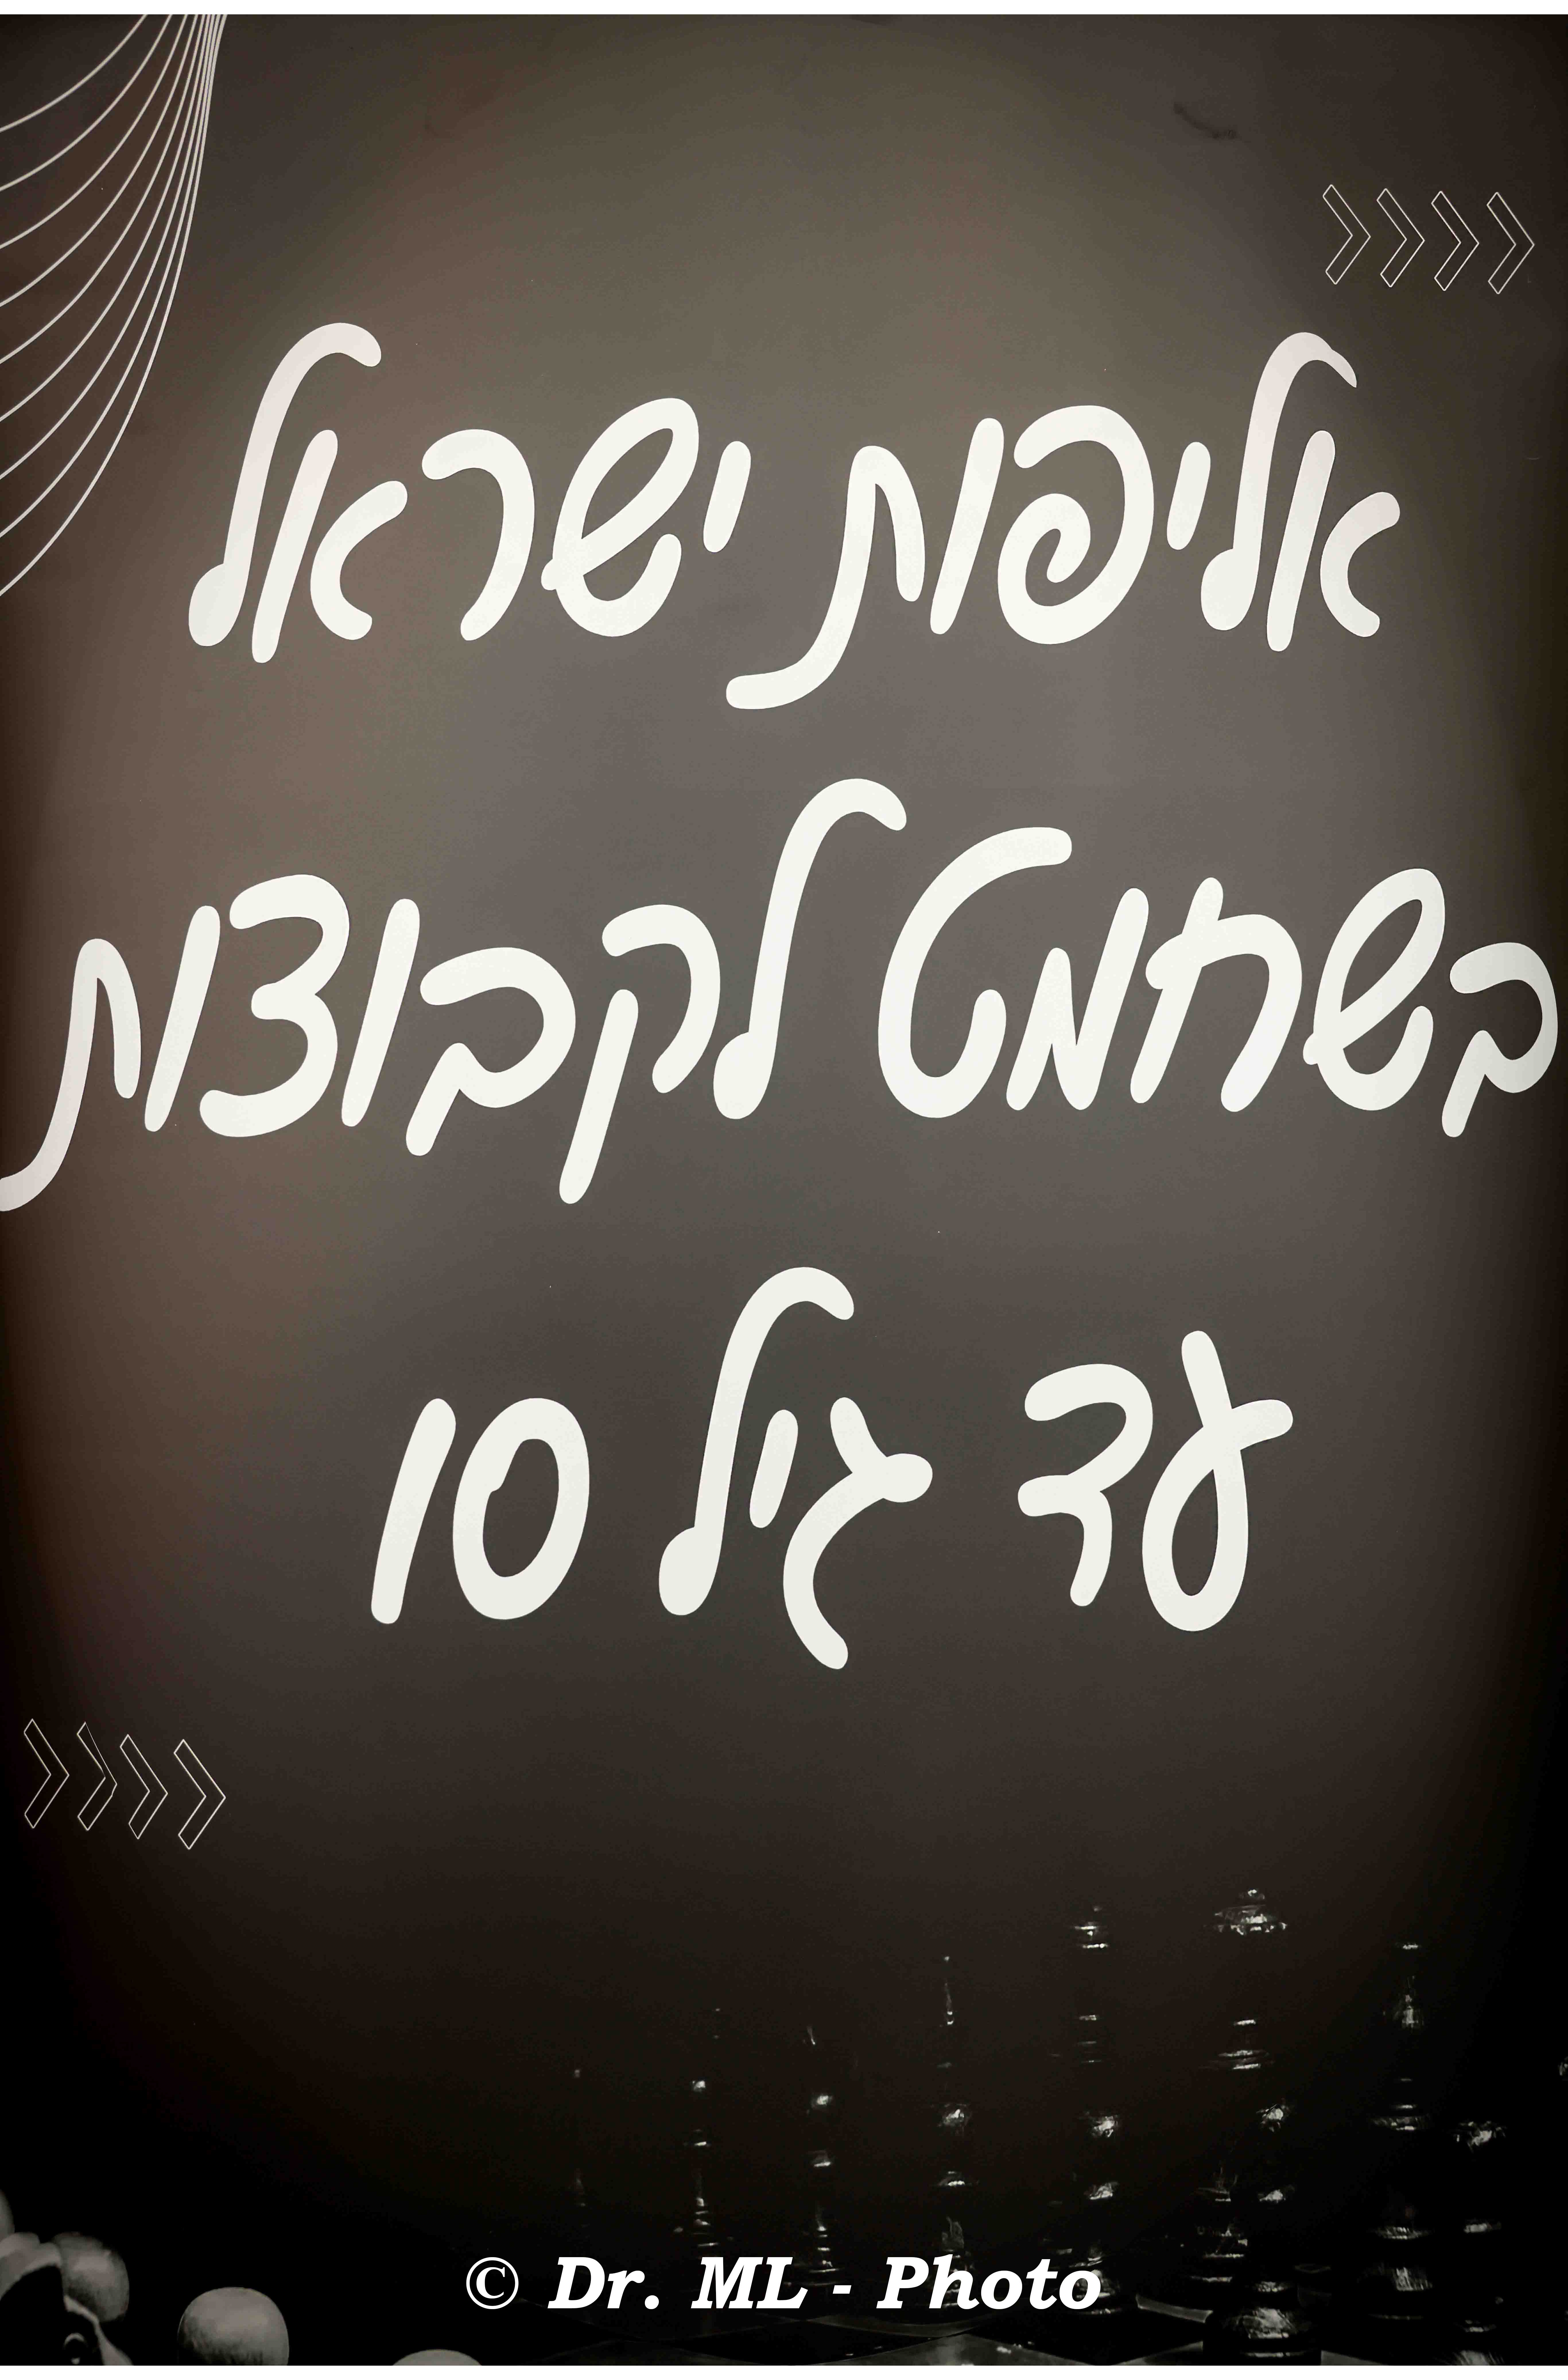 אליפות ישראל
בשחמט לקבוצות
עד גיל 10
© Dr. ML - Photo